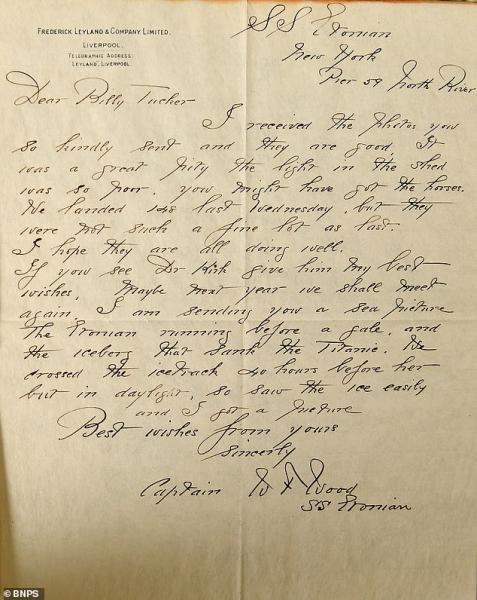 FREDERICK LEYLAND & COMPANY LIMITED.
LIVERPOOL.
TELEGRAPHIC ADDRESS:
LEYLAND, LIVERPOOL.
SS Etonian
New York
Pier 59 North River
Dear Billy Tucker
I received the photos you
so kindly sent and they are good. It
was a great pity the light in the shed
was so poor. you might have got the horses.
We landed 148 last Wednesday, but they
were not such a fine lot as last.
I hope they are all doing well.
If you see Dr Kirk give him my best
wishes. Maybe next year we shall meet
again. I am sending you a sea picture
The Etonian running before a gale, and
the iceberg that sank the Titanic. We
crossed the icetrack 40 hours before her
but in daylight, so saw the ice easily
and I got a picture
Best wishes from yours
Sincerely
Captain W F Wood
SS Etonian
BNPS